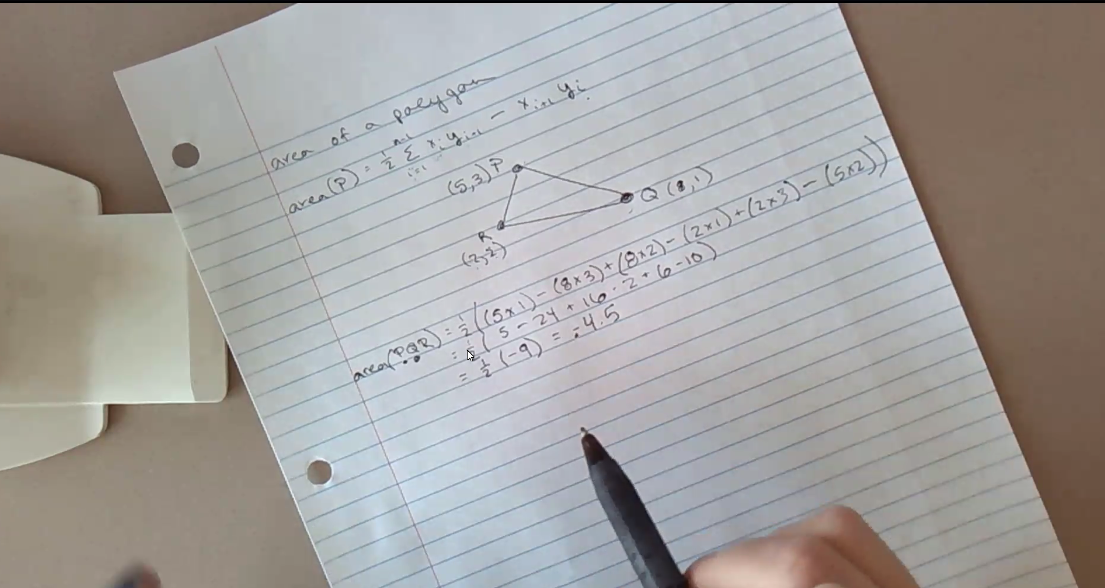 area of a polygon
area(P) = 1/2 n-1 Σ i=1 x_i y_{i+1} - x_{i+1} y_i
(5,3) P
Q (8,1)
R
(2,2)
area(PQR) = 1/2 ((5x1) - (8x3) + (8x2) - (2x1) + (2x3) - (5x2))
= 1/2 (5 - 24 + 16 - 2 + 6 - 10)
= 1/2 (-9) = -4.5